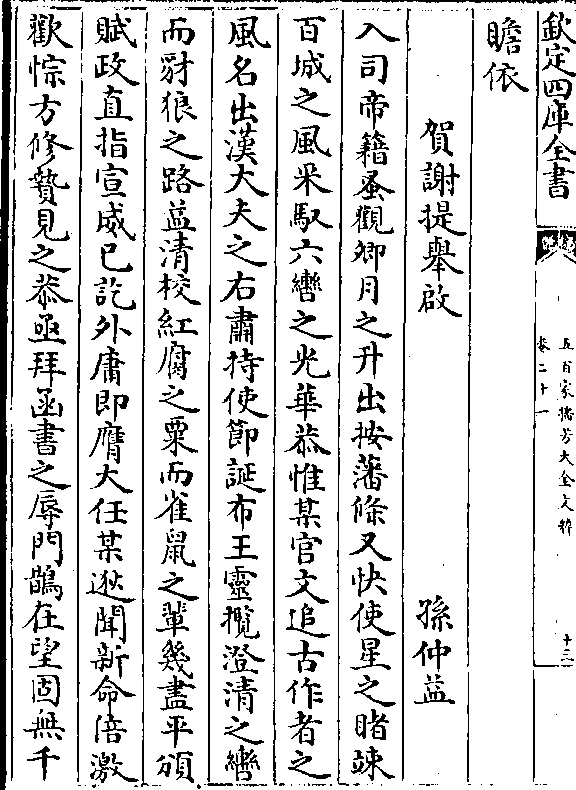 欽定四庫全書
五百家播芳大全文粹
卷二十一
十三
瞻依
賀謝提舉啟
孫仲益
入司帝籍蚤觀卿月之升出按藩條又快使星之睹竦
百城之風采馭六轡之光華恭惟某官文追古作者之
風名出漢大夫之右肅持使節誕布王靈攬澄清之轡
而豺狼之路益清校紅腐之粟而雀鼠之輩幾盡平頒
賦政直指宣威已訖外庸即膺大任某逖聞新命倍激
歡悰方修贄見之恭亟拜函書之辱門鵲在望固無千